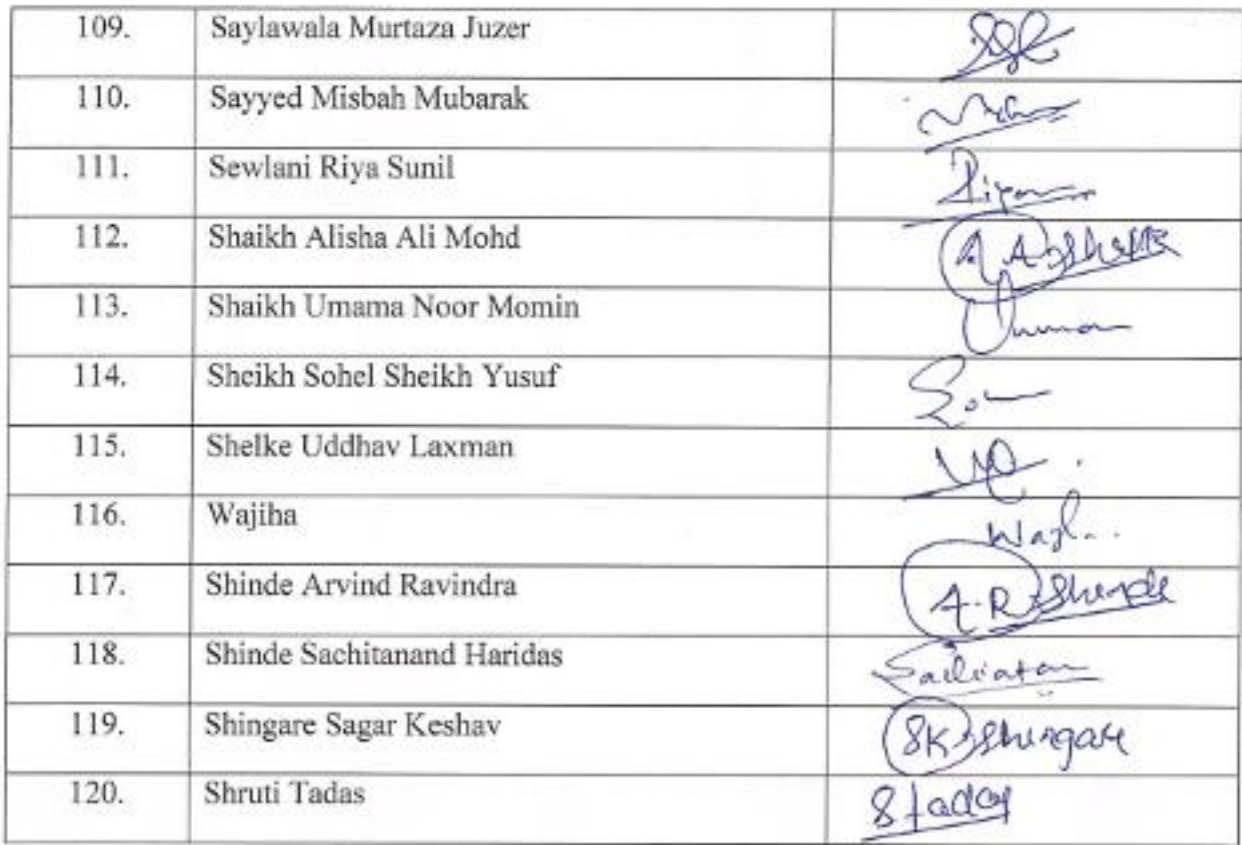 109. Saylawala Murtaza Juzer
110. Sayyed Misbah Mubarak
111. Sewlani Riya Sunil
112. Shaikh Alisha Ali Mohd A.A.
113. Shaikh Umama Noor Momin
114. Sheikh Sohel Sheikh Yusuf
115. Shelke Uddhav Laxman
116. Wajiha
117. Shinde Arvind Ravindra A.R Shinde
118. Shinde Sachitanand Haridas
119. Shingare Sagar Keshav SK Shingare
120. Shruti Tadas Stadas